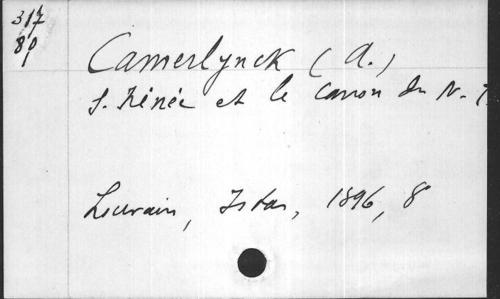 317
81
Camerlynck (A.)
S. Irénée et le canon du N. T.
Louvain, Istas, 1896, 8°